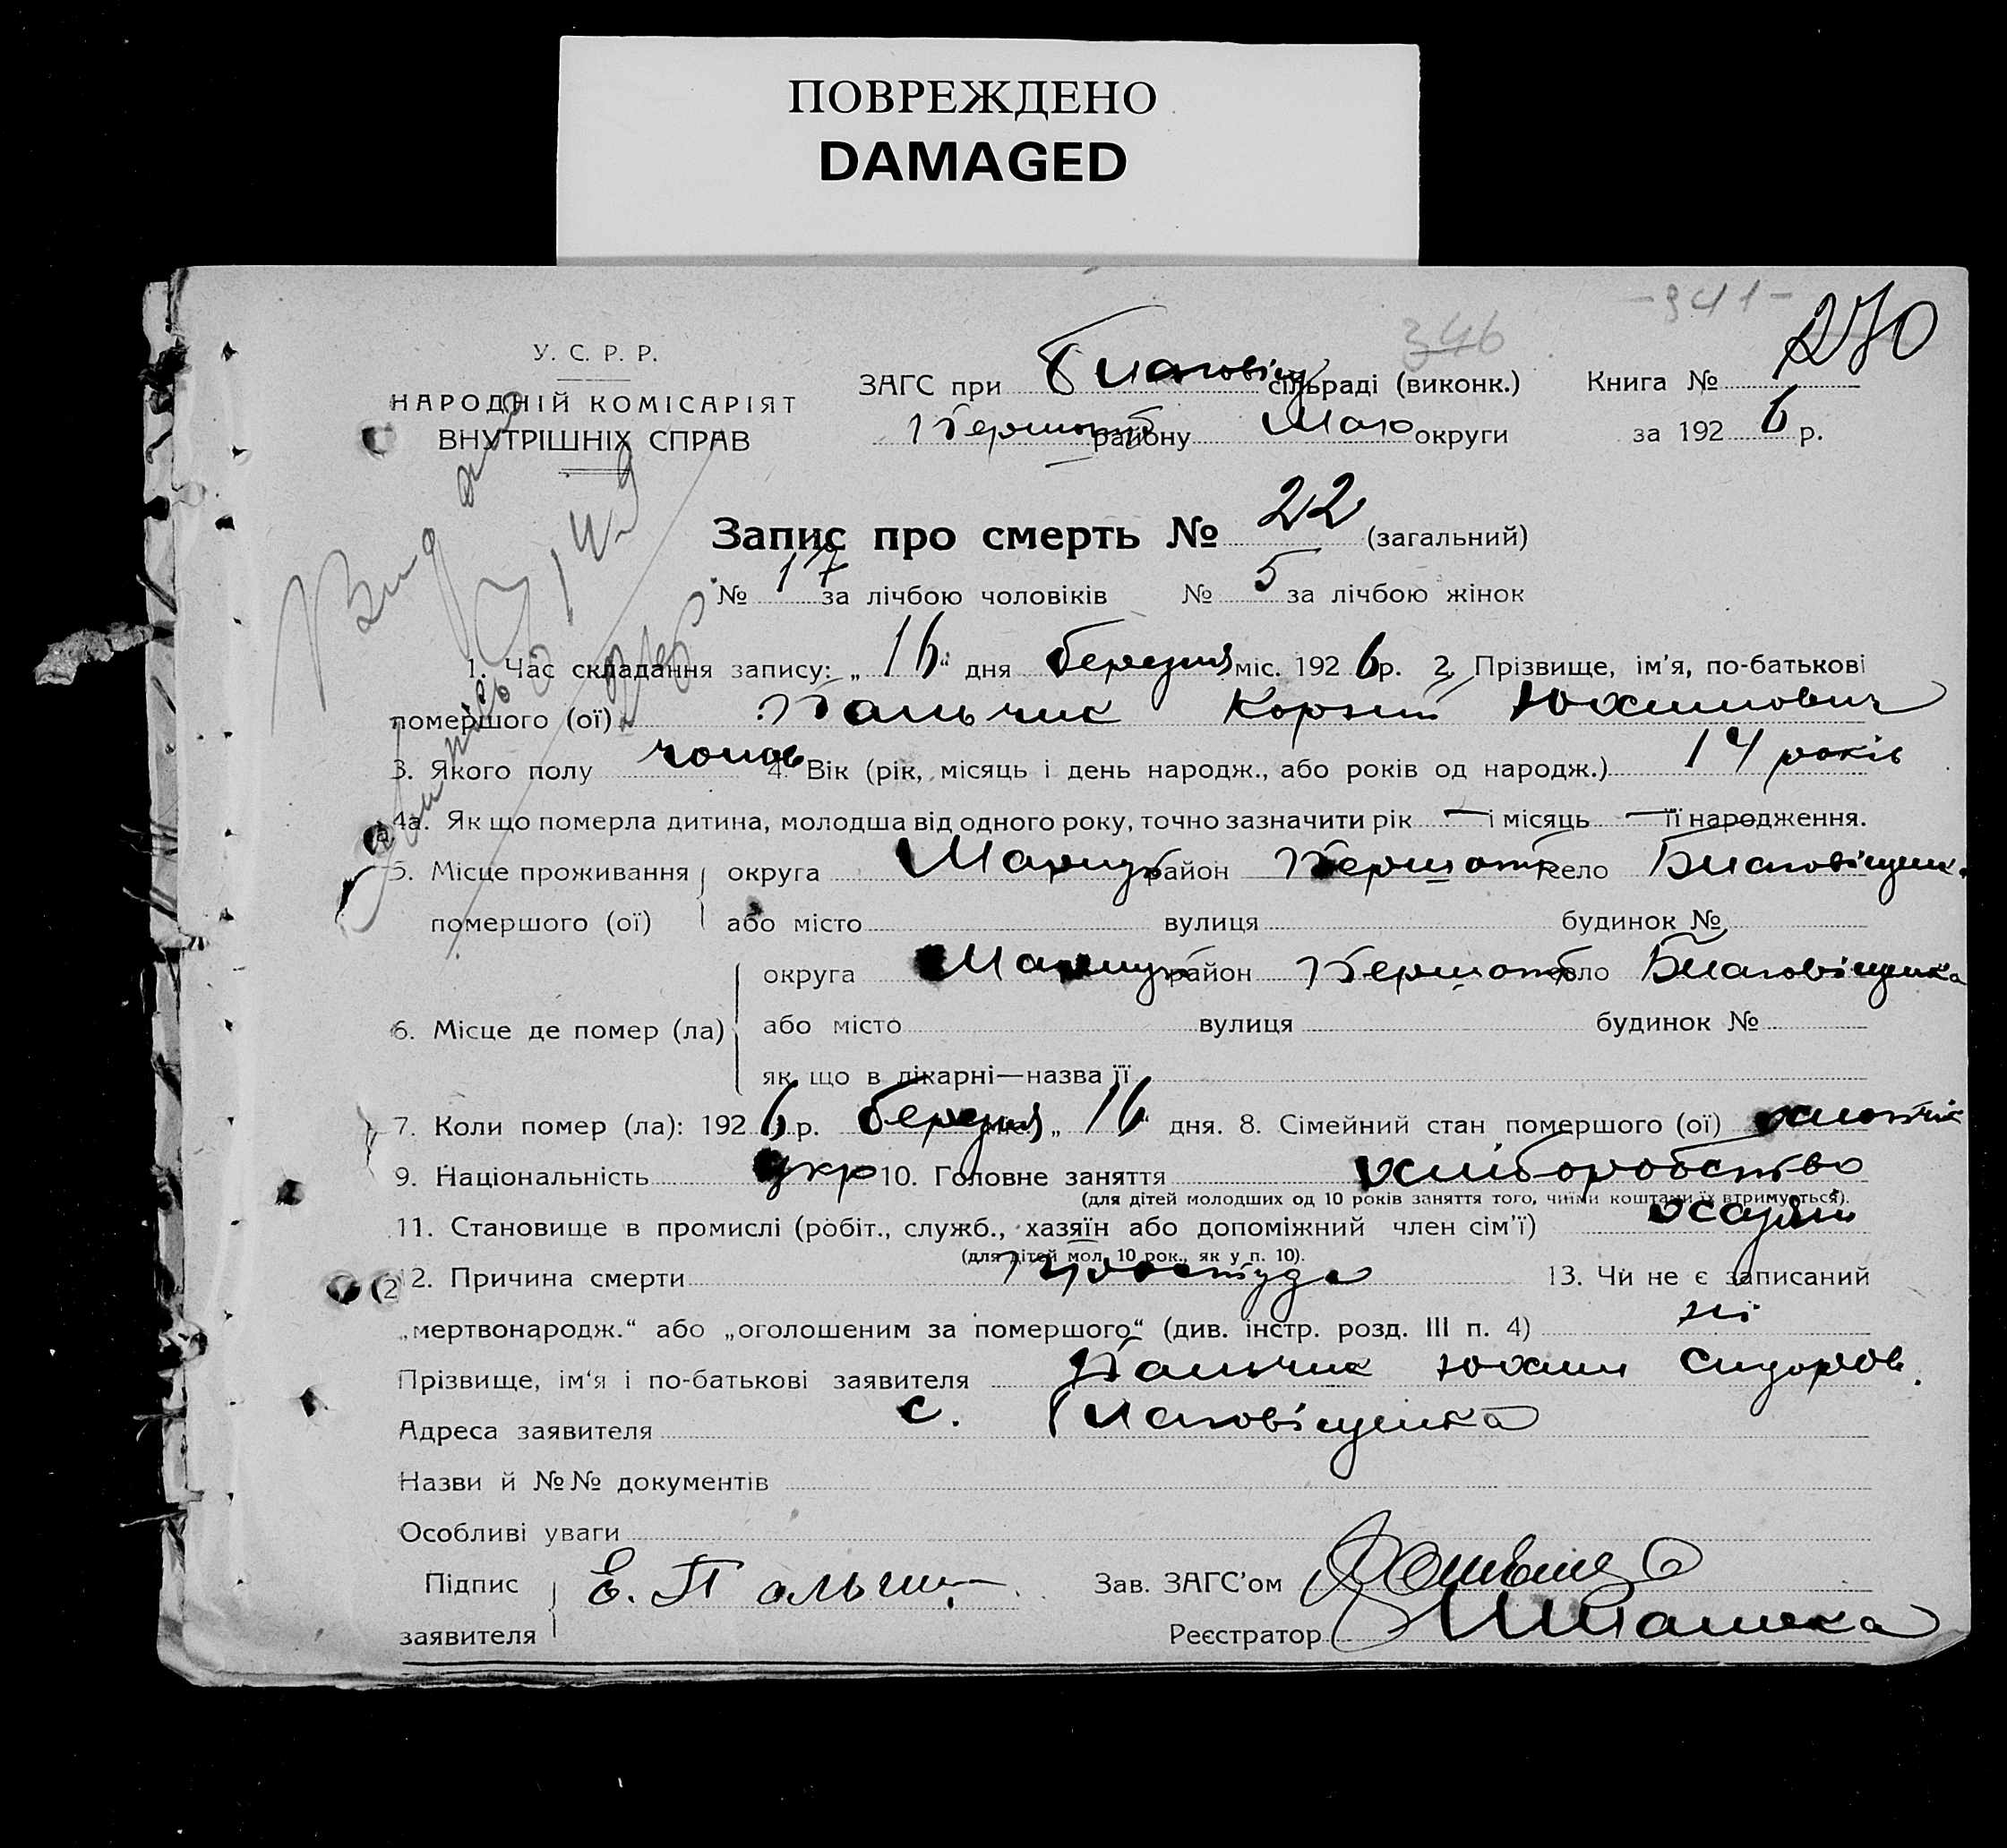 ПОВРЕЖДЕНО
DAMAGED
-341-
346
270
У. С. Р. Р.
НАРОДНІЙ КОМІСАРІЯТ
ВНУТРІШНІХ СПРАВ
ЗАГС при Благовіщ сільраді (виконк.) Книга №
району Марю округи за 1926 р.
Запис про смерть № 22 (загальний)
№ 17 за лічбою чоловіків № 5 за лічбою жінок
1. Час складання запису: „16" дня березня міс. 1926 р. 2. Прізвище, ім'я, по-батькові
помершого (ої) Пальчик Корній Юхимович
3. Якого полу чолов 4. Вік (рік, місяць і день народж., або років од народж.) 14 років
4а. Як що померла дитина, молодша від одного року, точно зазначити рік — і місяць — її народження.
5. Місце проживання округа Маріуп район Першотр село Благовіщенк.
помершого (ої) або місто вулиця будинок №
округа Маріуп район Першотр село Благовіщенка
6. Місце де помер (ла) або місто вулиця будинок №
як що в лікарні—назва її
7. Коли помер (ла): 1926 р. березня міс. „16" дня. 8. Сімейний стан помершого (ої) хлопчик
9. Національність укр 10. Головне заняття хліборобство
(для дітей молодших од 10 років заняття того, чиїми коштами їх втримується).
11. Становище в промислі (робіт., служб., хазяїн або допоміжний член сім'ї) хазяїн
(для дітей мол. 10 рок., як у п. 10).
12. Причина смерти простуда 13. Чи не є записаний
„мертвонародж.“ або „оголошеним за помершого“ (див. інстр. розд. III п. 4) ні
Прізвище, ім'я і по-батькові заявителя Пальчик Юхим Сидоров.
Адреса заявителя с. Благовіщенка
Назви й №№ документів
Особливі уваги
Підпис Е. Пальчик Зав. ЗАГС'ом
заявителя Реєстратор